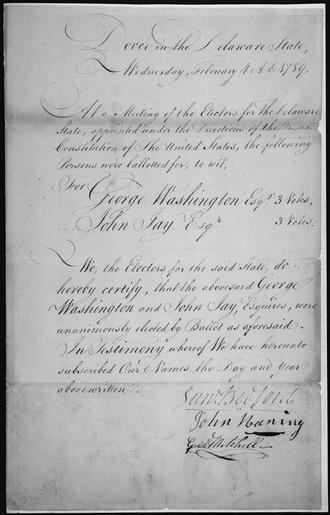 Dover in the Delaware State,
Wednesday, February 4 A.D. 1789.
At a Meeting of the Electors for the Delaware
State, appointed under the Directions of the
Constitution of The United States, the following
Persons were ballotted for, to wit,
For
George Washington Esqr. 3 Votes,
John Jay Esqr. 3 Votes.
We, the Electors for the said State, do
hereby certify, that the abovesaid George
Washington and John Jay, Esquires, were
unanimously elected by Ballot as aforesaid.
In Testimony whereof We have hereunto
subscribed Our Names, the Day and Year
above written.
Gunng Bedford
John Baning
Geo Mitchell